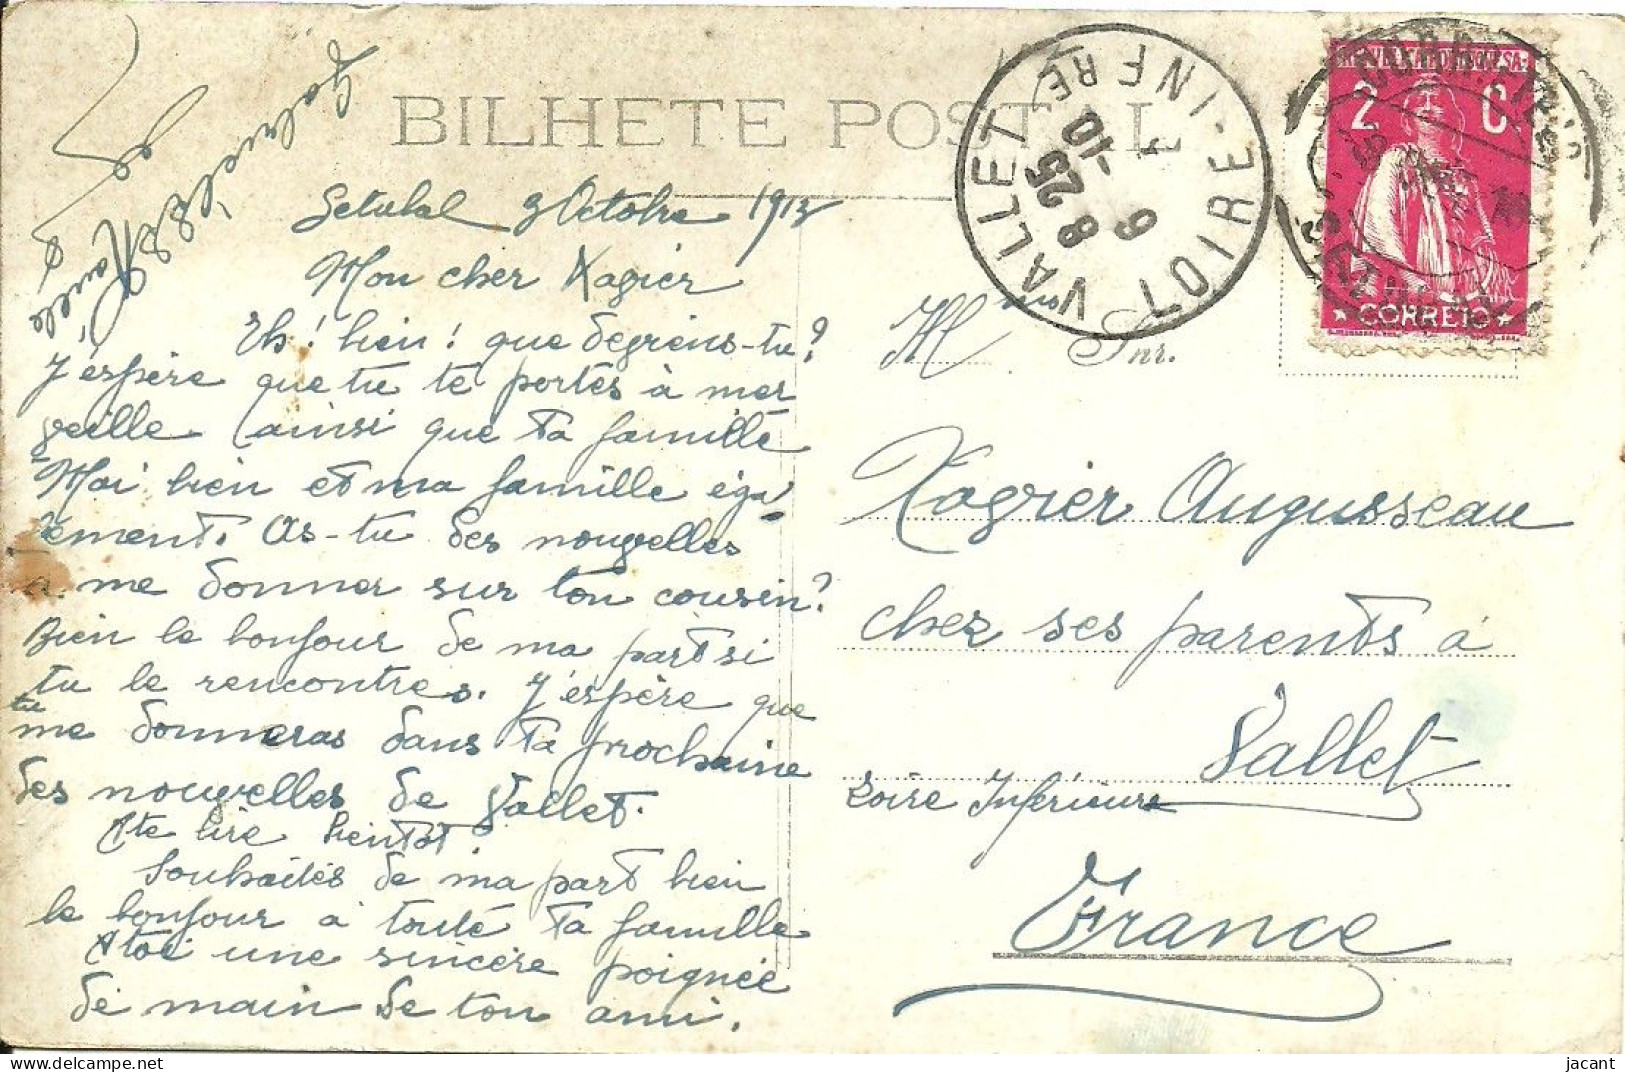 BILHETE POSTAL
Setubal 3 Octobre 1913
Mon cher Xavier
Eh! bien! que deviens-tu?
J'espère que tu te portes à mer
veille ainsi que ta famille
Moi bien et ma famille éga
lement. As-tu des nouvelles
à me donner sur ton cousin?
Bien le bonjour de ma part si
tu le rencontres. J'espère que
tu
me donneras dans ta prochaine
des nouvelles de Vallet.
A te lire bientôt.
Souhaites de ma part bien
le bonjour à toute ta famille
A toi une sincère poignée
de main de ton ami.
VALLET
LOIRE-INFRE
8 25
6-10
REPUBLICA PORTUGUESA
2 C.
CORREIO
Snr.
Xavier Augusseau
chez ses parents à
Vallet
Loire Inférieure
France
jacant